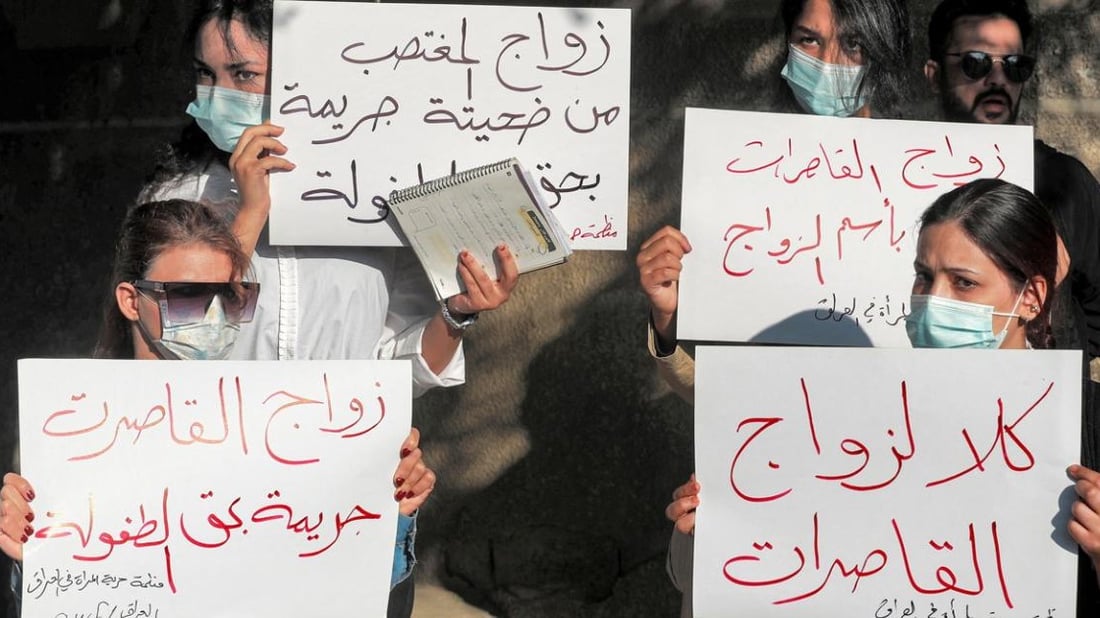 زواج المغتصب
من ضحيتة جريمة
بحق الطفولة
منظمة
زواج القاصرات
بأسم الزواج
المرأة في العراق
زواج القاصرت
جريمة بحق الطفولة
منظمة حرية المرأة في العراق
العراق
كلا لزواج
القاصرات